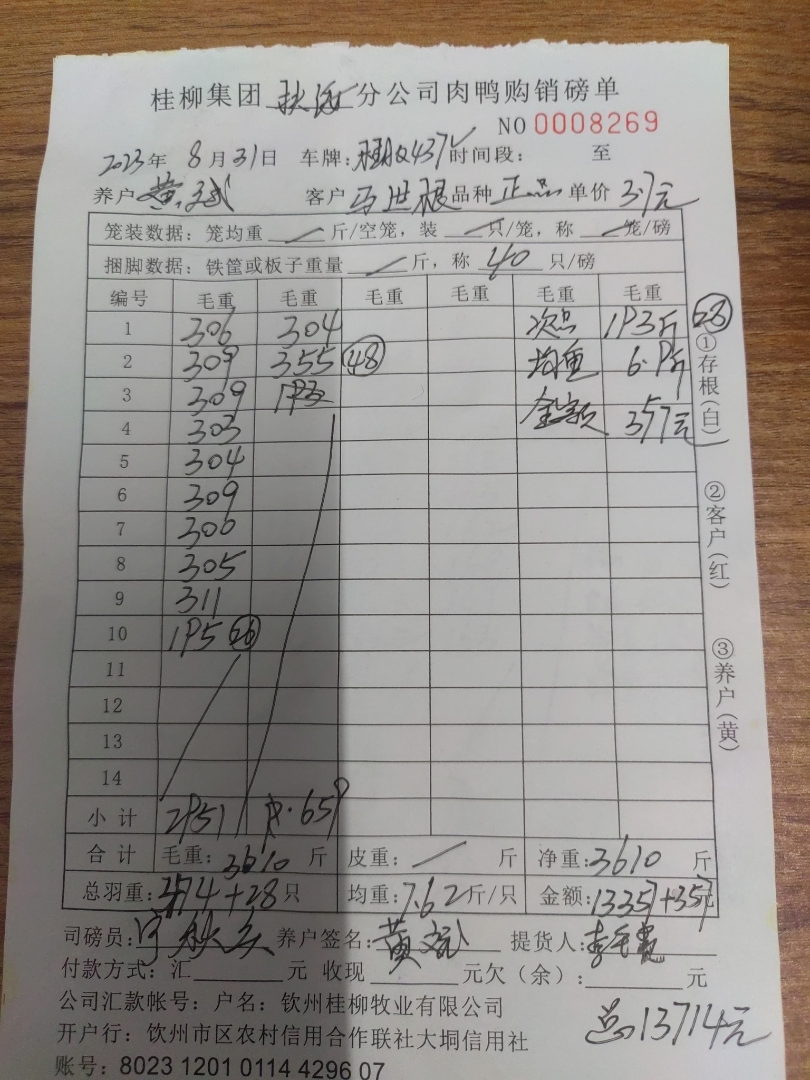 桂柳集团 秋海 分公司肉鸭购销磅单
NO 0008269
2023年 8月31日 车牌: Q437 时间段: 至
养户 黄 客户 马世根 品种 正品 单价 3.7元
笼装数据: 笼均重 斤/空笼, 装 只/笼, 称 笼/磅
捆脚数据: 铁筐或板子重量 斤, 称 40 只/磅
编号 毛重 毛重 毛重 毛重 毛重 毛重
1 306 304 次品 193斤 28
2 309 355 48 均重 6.9斤
3 309 193 金额 357元
4 303
5 304
6 309
7 300
8 305
9 311
10 195 26
11
12
13
14
小计 2951 659
合计 毛重: 3610 斤 皮重: 斤 净重: 3610 斤
总羽重: 474+28 只 均重: 7.62 斤/只 金额: 13357+357元
司磅员: 养户签名: 黄 提货人: 李
付款方式: 汇 元 收现 元欠(余): 元
公司汇款帐号: 户名: 钦州桂柳牧业有限公司
开户行: 钦州市区农村信用合作联社大垌信用社
总13714元
账号: 8023 1201 0114 4296 07
①存根(白)
②客户(红)
③养户(黄)